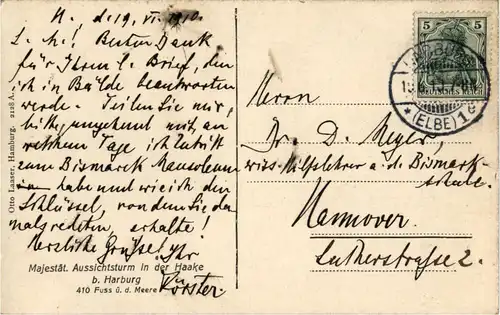 H. d. 19. VI. 1910.
L. H.! Besten Dank
für Ihren l. Brief, den
ich in Bälde beantworten
werde. Teilen Sie mir,
bitte, umgehend mit, an
welchem Tage ich Zutritt
zum Bismarck Mausoleum
habe und wie ich den
Schlüssel, von dem Sie da-
mals redeten, erhalte!
Herzliche Grüsse! Ihr
Förster.
Majestät. Aussichtsturm in der Haake
b. Harburg
410 Fuss ü. d. Meere
Otto Laaser, Hamburg. 2128 A.
5 5
DEUTSCHES REICH
HARBURG
* (ELBE) 1
Herrn
Dr. D. Meyer,
wiss. Hilfslehrer a. d. Bismarck-
schule.
Hannover.
Lutherstrasse 2.